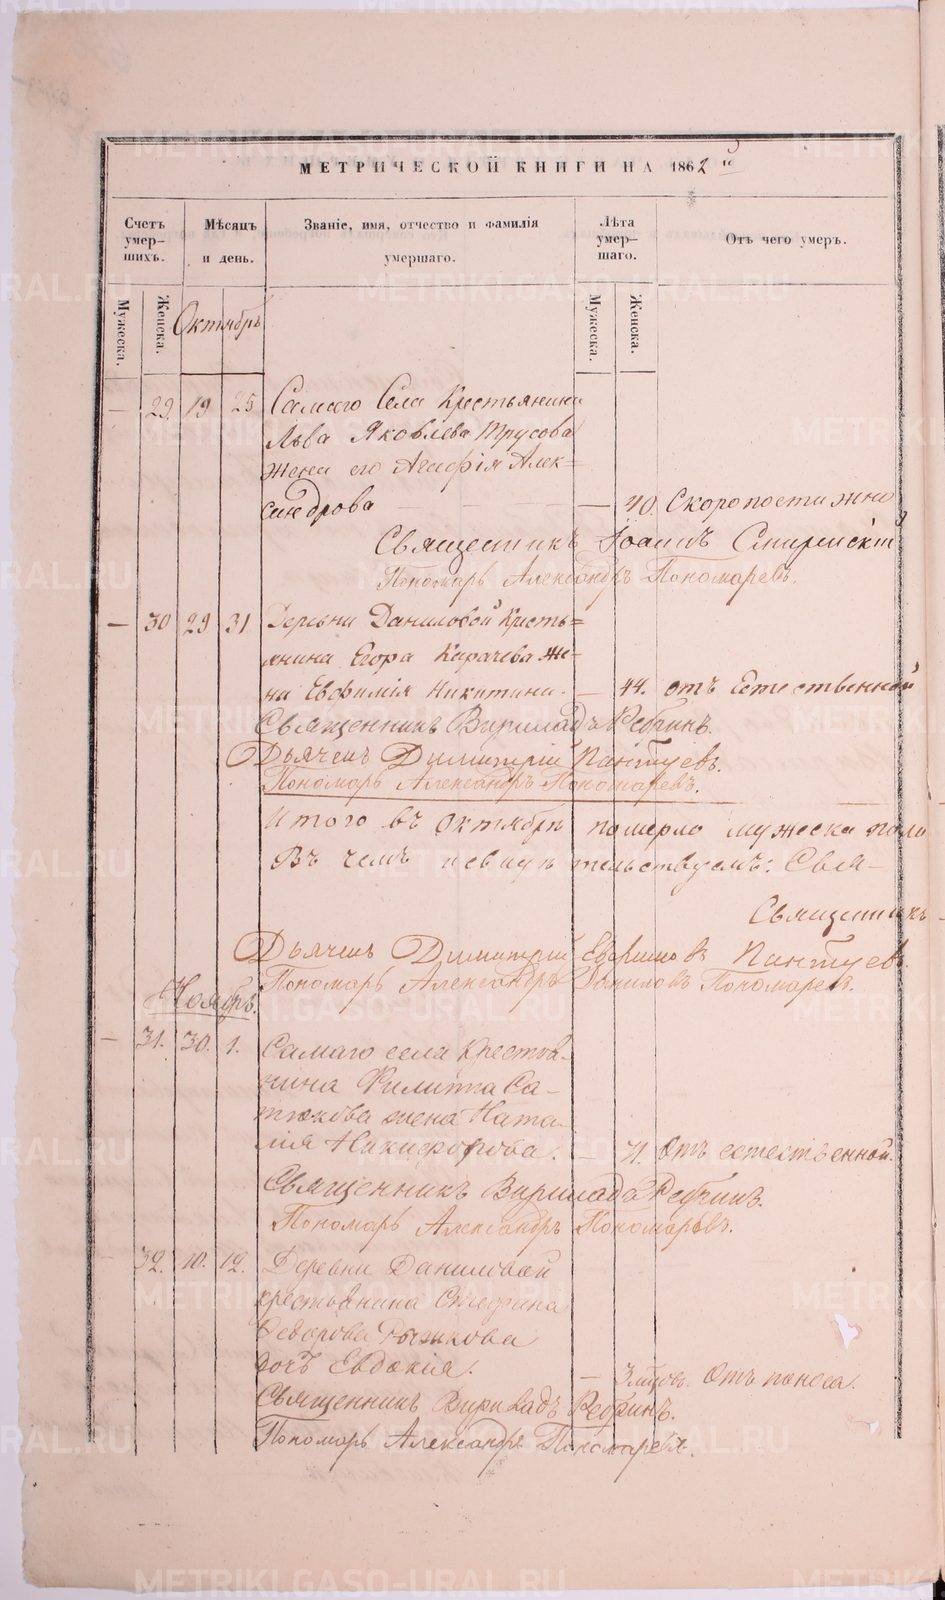 МЕТРИЧЕСКОЙ КНИГИ НА 1862 й
Счетъ умер-шихъ.
Мѣсяцъ и день.
Званіе, имя, отчество и фамилія умершаго.
Лѣта умер-шаго.
Отъ чего умеръ.
Мужеска.
Женска.
Мужеска.
Женска.
Октябрь
— 29 19 25 Самаго Села Крестьянина
Льва Яковлева Трусова
жена его Агафія Алек=
сандрова — 40. Скоропостижно
Священникъ Іоаннъ
Пономарь Александръ Пономаревъ.
— 30 29 31 Деревни Даниловой Кресть=
янина Егора Карачева же-
на Евфимія Никитина. — 44. отъ Естественной
Священникъ Ребринъ.
Дьячекъ Димитрій Пантуевъ.
Пономарь Александръ Пономаревъ.
Итого въ Октябрѣ померло мужеска пола
Въ чемъ свидѣтельствуемъ: Свя-
Священникъ
Дьячекъ Димитрій Пантуевъ.
Пономарь Александръ Даниловъ Пономаревъ.
Ноябрь.
— 31. 30. 1. Самаго села Крестья-
нина Филиппа Са-
тюкова жена Ната-
лія Никифорова. — 71. Отъ естественной.
Священникъ Ребринъ.
Пономарь Александръ Пономаревъ.
32. 10. 12. Деревни Даниловой
крестьянина Стефана
Федорова
дочь Евдокія. — 3 мѣсцов. Отъ поноса.
Священникъ Ребринъ.
Пономарь Александръ Пономаревъ.
METRIKI.GASO-URAL.RU